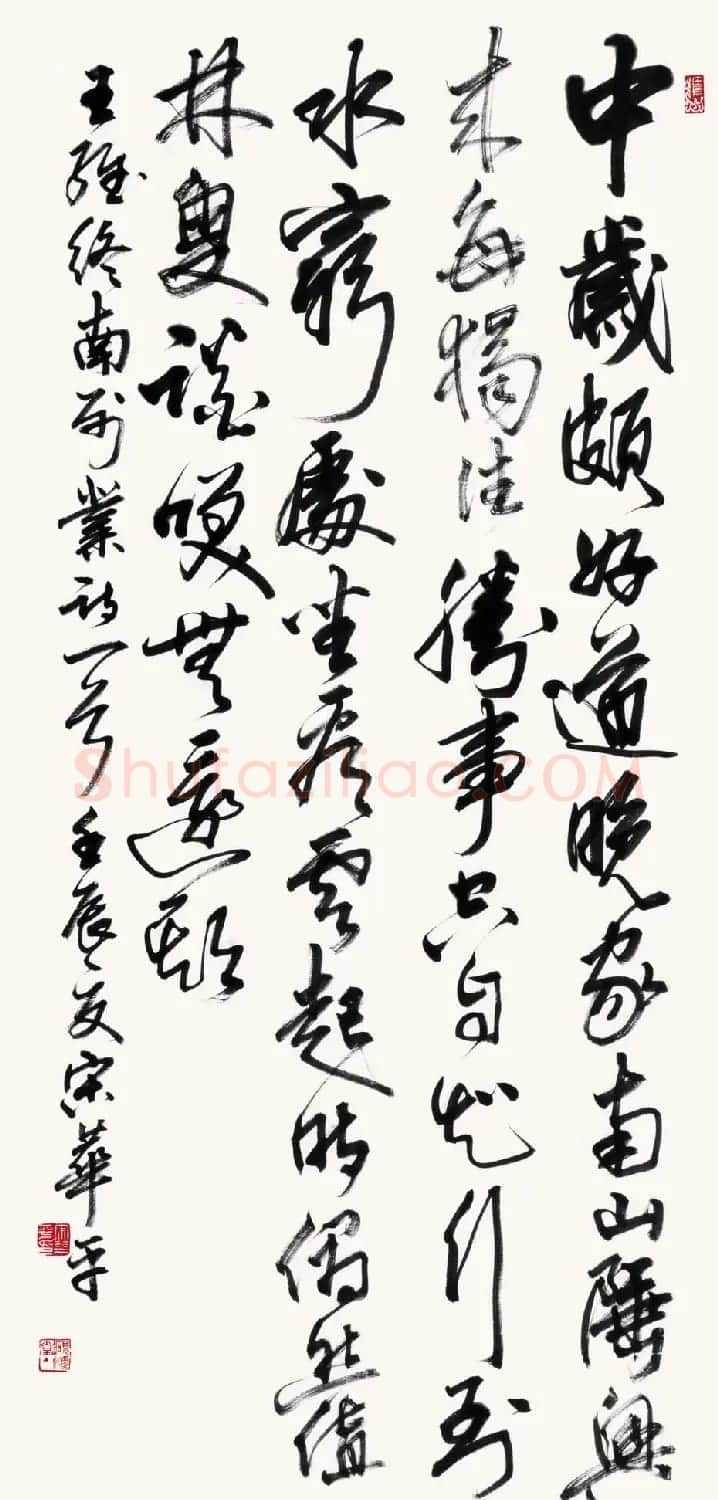 中歲頗好道晚家南山陲興
來每獨往勝事空自知行到
水窮處坐看雲起時偶然值
林叟談咲無還期
王維終南別業詩一首壬辰夏宋華平
Shufaziliao.COM